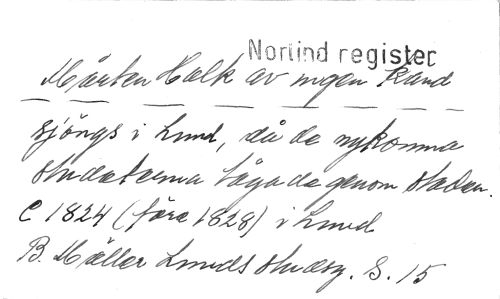 Norlind register
Mårten Holk av ingen känd
sjöngs i Lund, då de nykomna
studenterna tågade genom staden.
C 1824 (före 1828) i Lund
B. Möller Lunds studsg. S. 15